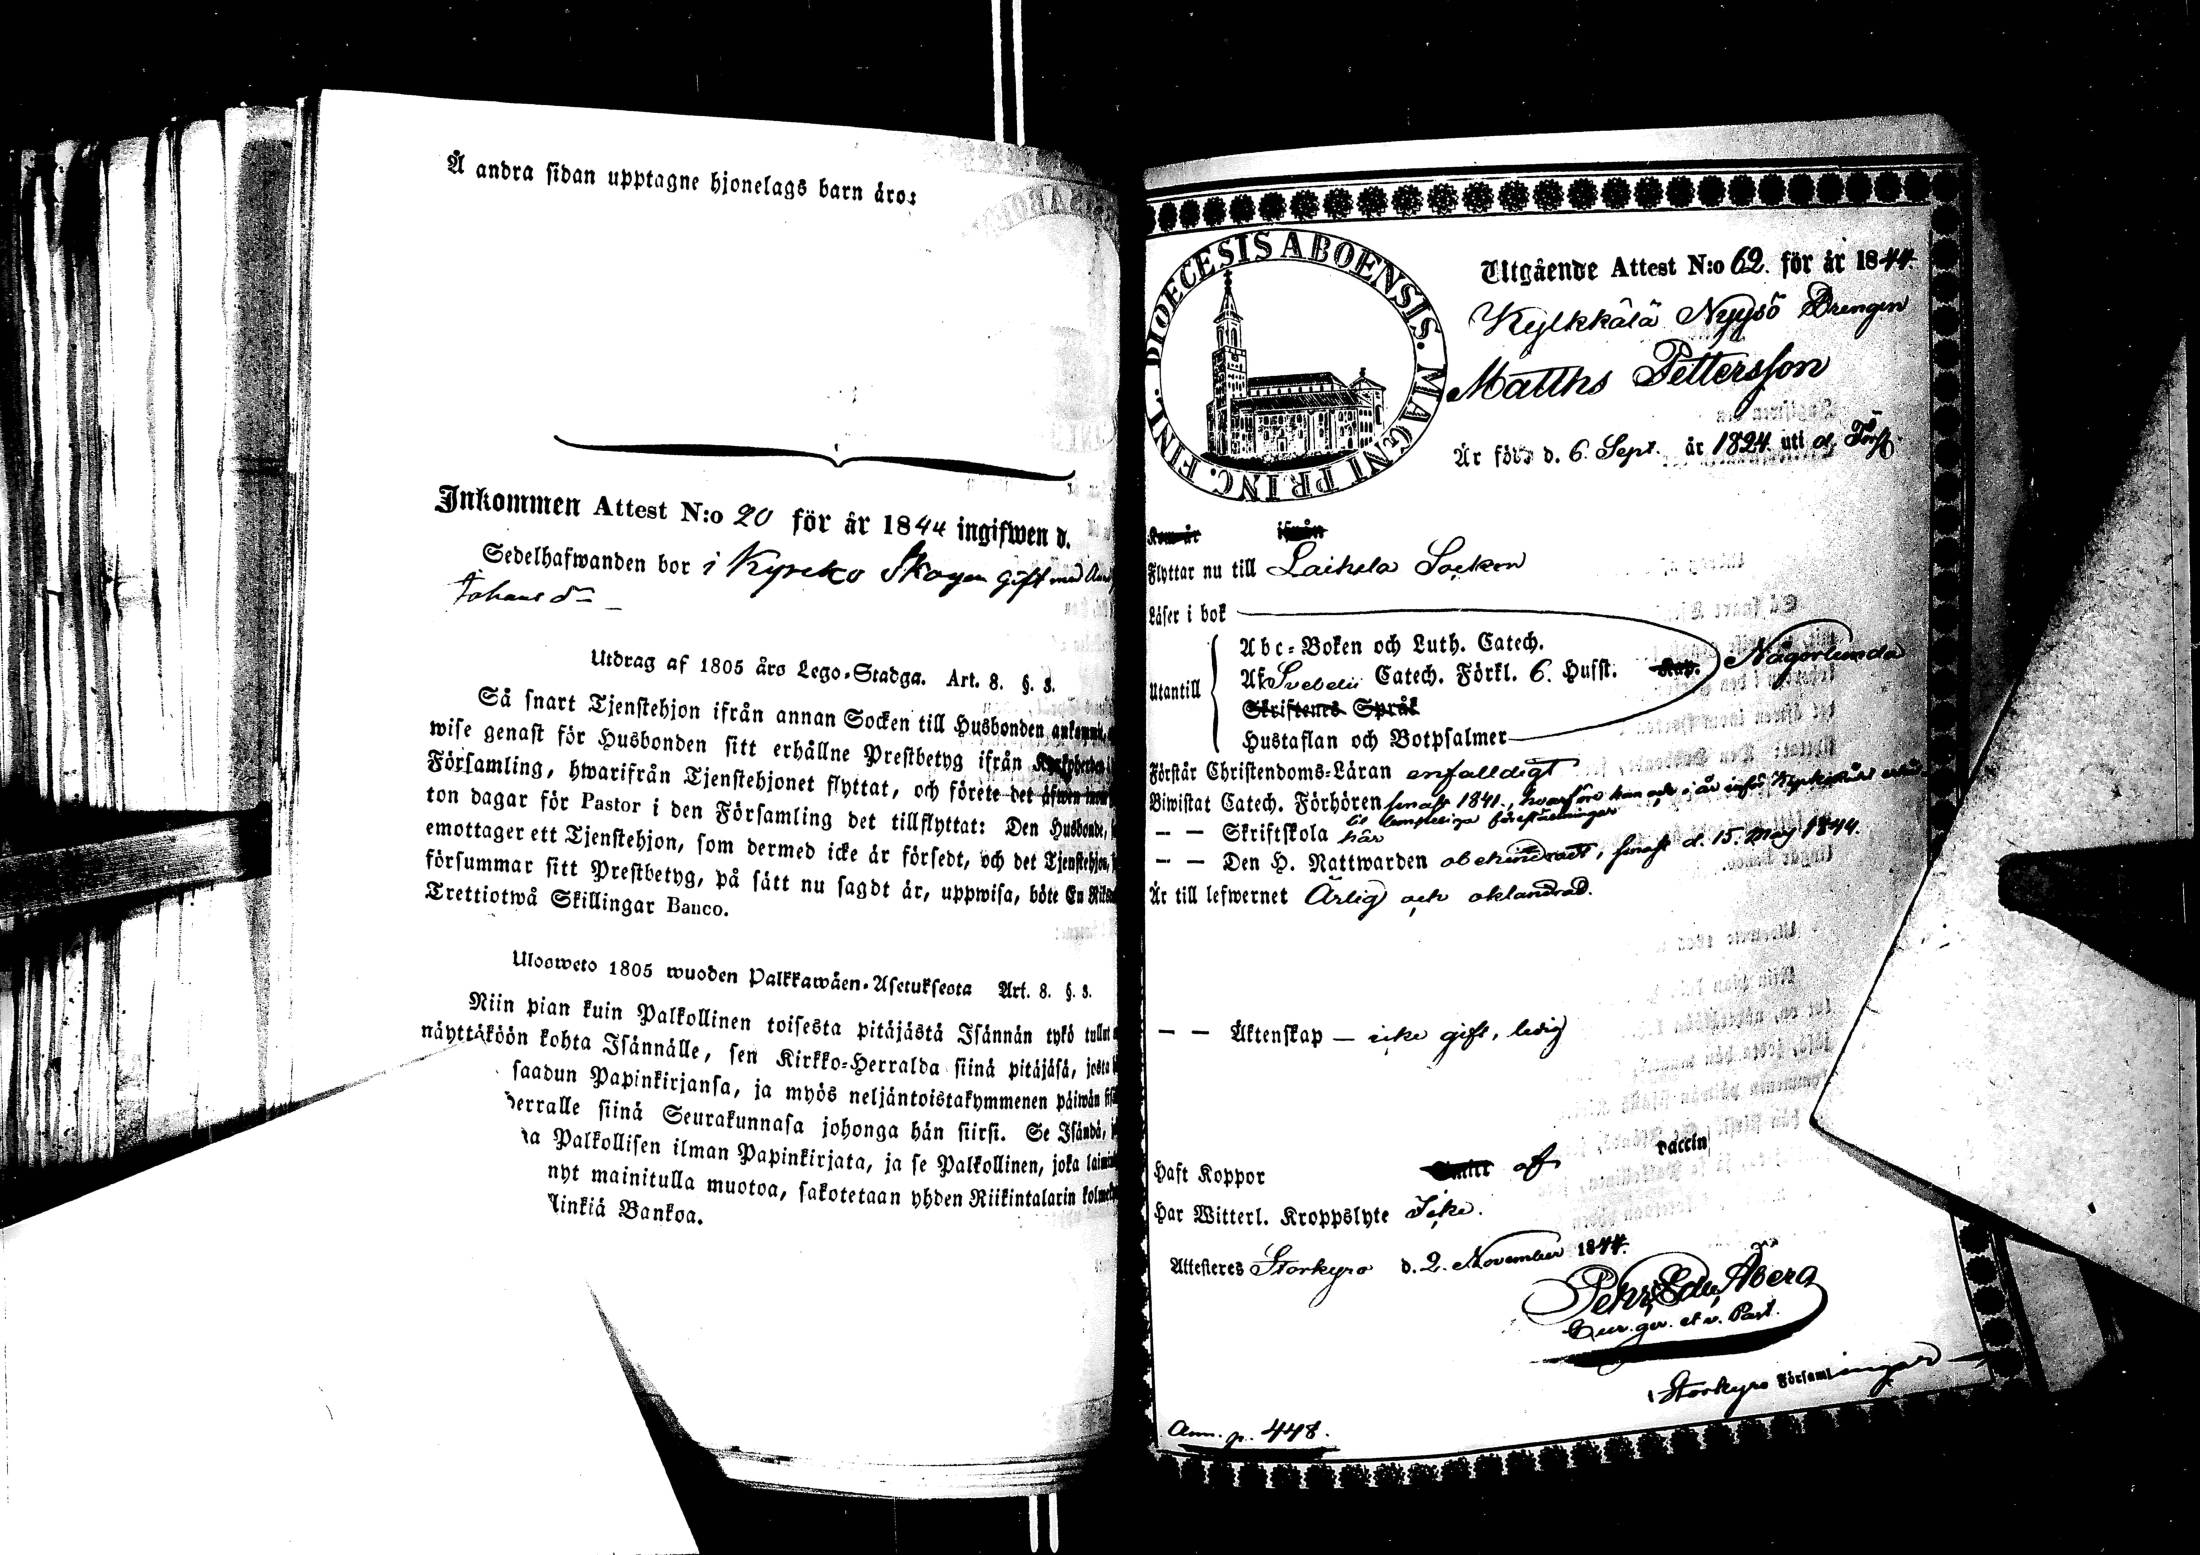 Å andra sidan upptagne hjonelags barn äro:
Inkommen Attest N:o 20 för år 1844 ingifwen d.
Sedelhafwanden bor i Kyrcko Skogen gift med
Johans dr
Utdrag af 1805 års Lego-Stadga. Art. 8. §. 3.
Så snart Tjenstehjon ifrån annan Socken till Husbonden
wise genast för Husbonden sitt erhållne Prestbetyg ifrån
Församling, hwarifrån Tjenstehjonet flyttat, och förete det äfwen
ton dagar för Pastor i den Församling det tillflyttat: Den Husbonde,
emottager ett Tjenstehjon, som dermed icke är försedt, och det Tjenstehjon,
försummar sitt Prestbetyg, på sätt nu sagdt är, uppwisa, böte En
Trettiotwå Skillingar Banco.
Ulosweto 1805 wuoden Palkkawäen-Asetuksesta Art. 8. §. 3.
Niin pian kuin Palkollinen toisesta pitäjästä Isännän tykö tullut
näyttäköön kohta Isännälle, sen Kirkko-Herralda siinä pitäjäsä, josta
saadun Papinkirjansa, ja myös neljäntoistakymmenen päiwän
herralle siinä Seurakunnasa johonga hän siirsi. Se Isändä,
Palkollisen ilman Papinkirjata, ja se Palkollinen, joka
nyt mainitulla muotoa, sakotetaan yhden Riikintalarin
linkiä Bankoa.
FINL. DIOECESIS ABOENSIS. MAGNI PRINC.
Utgående Attest N:o 62. för år 1844.
Kylkkälä Nyysö Drengen
Matths Pettersson
Är född d. 6. Sept. år 1824. uti d. Förs.
Kom år ifrån
Flyttar nu till Laihela Socken
Läser i bok
Utantill
Abc-Boken och Luth. Catech.
Af Svebelii Catech. Förkl. 6. Hufst. Kap. Någorlunda
Skriftenes Språk
Hustaflan och Botpsalmer
Förstår Christendoms-Läran enfalldigt
Biwistat Catech. Förhören senast 1841., hvarföre han ock i år inför Kyrkorådet
til lämpeliga föreställningar
— — Skriftskola här
— — Den H. Nattwarden obehindradt, senast d. 15. May 1844.
Är till lefwernet Ärlig och oklandrad.
— — Äktenskap — icke gift, ledig
Haft Koppor af vaccin
Har Witterl. Kroppslyte Icke.
Attesteres Storkyro d. 2. November 1844.
Pehr Edv. Åberg
Cur. ger. et v. Past.
i Storkyro Församlingar
Ann. p. 448.